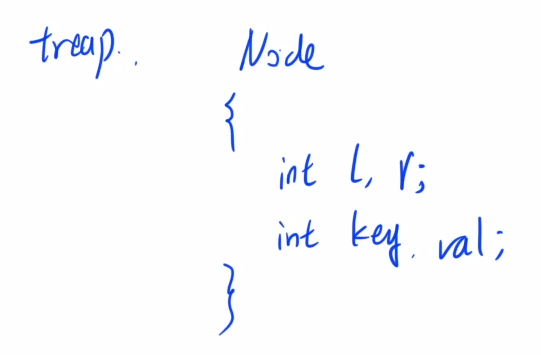 treap. Node
{
int l, r;
int key. val;
}